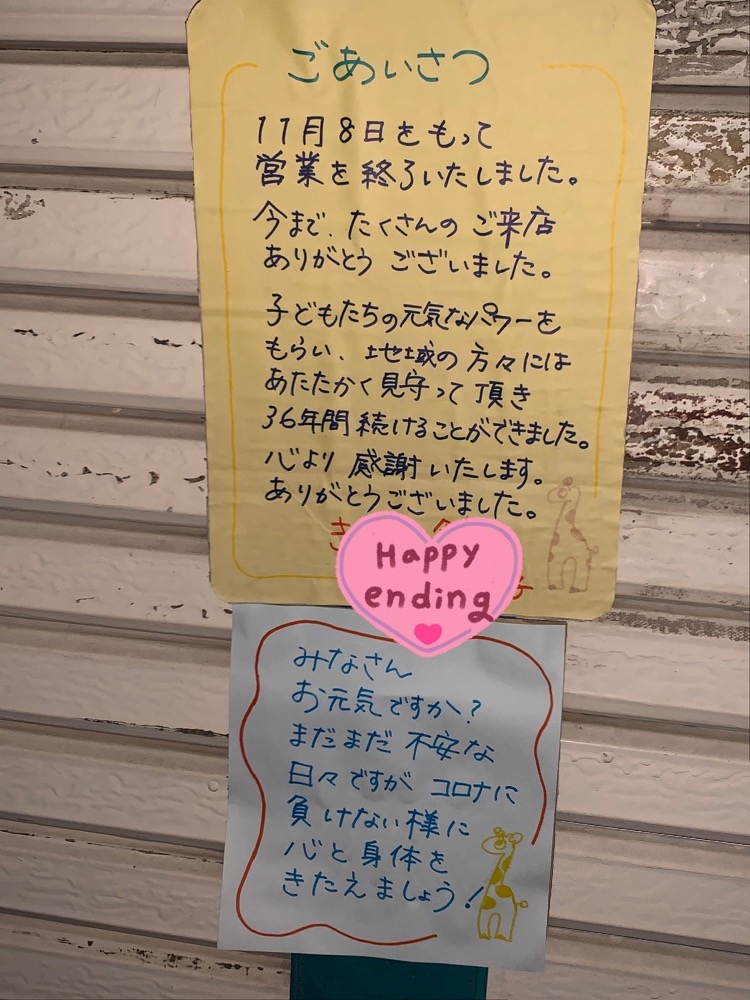 ごあいさつ
11月8日をもって
営業を終了いたしました。
今まで、たくさんのご来店
ありがとうございました。
子どもたちの元気なパワーを
もらい、地域の方々には
あたたかく見守って頂き
36年間続けることができました。
心より感謝いたします。
ありがとうございました。
Happy
ending
みなさん
お元気ですか?
まだまだ不安な
日々ですがコロナに
負けない様に
心と身体を
きたえましょう!